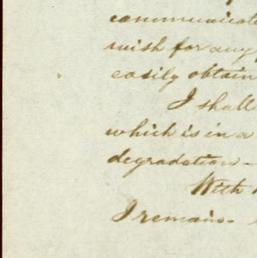 communicate
wish for any
easily obtain
I shall
which is in a
degradation -
With
I remain.